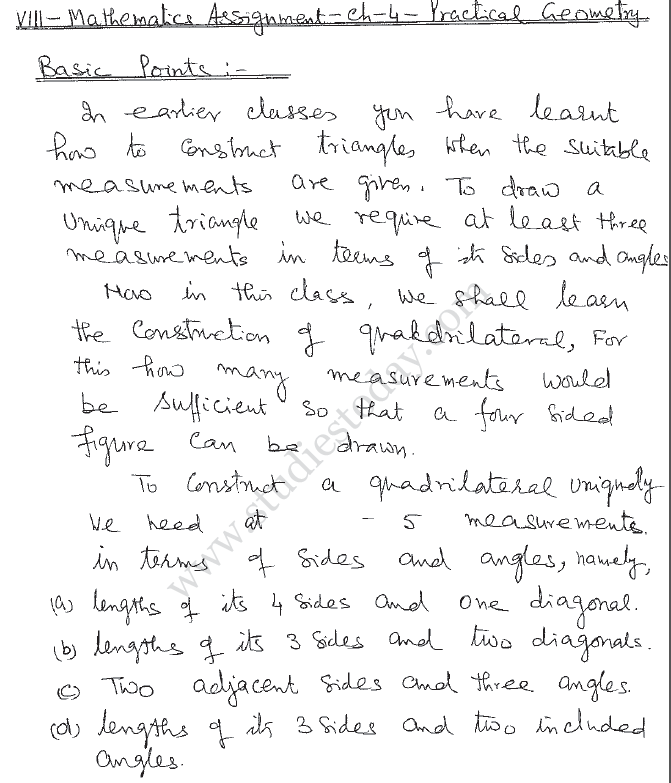 VIII - Mathematics Assignment - Ch-4 - Practical Geometry
Basic Points :-
In earlier classes you have learnt
how to construct triangles when the suitable
measurements are given. To draw a
unique triangle we require at least three
measurements in terms of its sides and angles
Now in this class, we shall learn
the construction of quakdrilateral, For
this how many measurements would
be sufficient so that a four sided
figure can be drawn.
To construct a quadrilateral uniquely
we need at - 5 measurements.
in terms of sides and angles, namely,
(a) lengths of its 4 sides and one diagonal.
(b) lengths of its 3 sides and two diagonals.
(c) Two adjacent sides and three angles.
(d) lengths of its 3 sides and two included
angles.
www.studiestoday.com